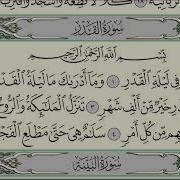 كَلَّا لَا تُطِعْهُ وَٱسْجُدْ وَٱقْتَرِب
سُورَةُ ٱلْقَدْرِ
بِسْمِ ٱللَّهِ ٱلرَّحْمَـٰنِ ٱلرَّحِيمِ
فِي لَيْلَةِ ٱلْقَدْرِ ١ وَمَآ أَدْرَىٰكَ مَا لَيْلَةُ ٱلْقَدْ
دْرِ خَيْرٌ مِّنْ أَلْفِ شَهْرٍ ٣ تَنَزَّلُ ٱلْمَلَـٰٓئِكَةُ وَٱلرُّو
هِم مِّن كُلِّ أَمْرٍ ٤ سَلَـٰمٌ هِيَ حَتَّىٰ مَطْلَعِ ٱلْفَجْ
سُورَةُ ٱلْبَيِّنَةِ